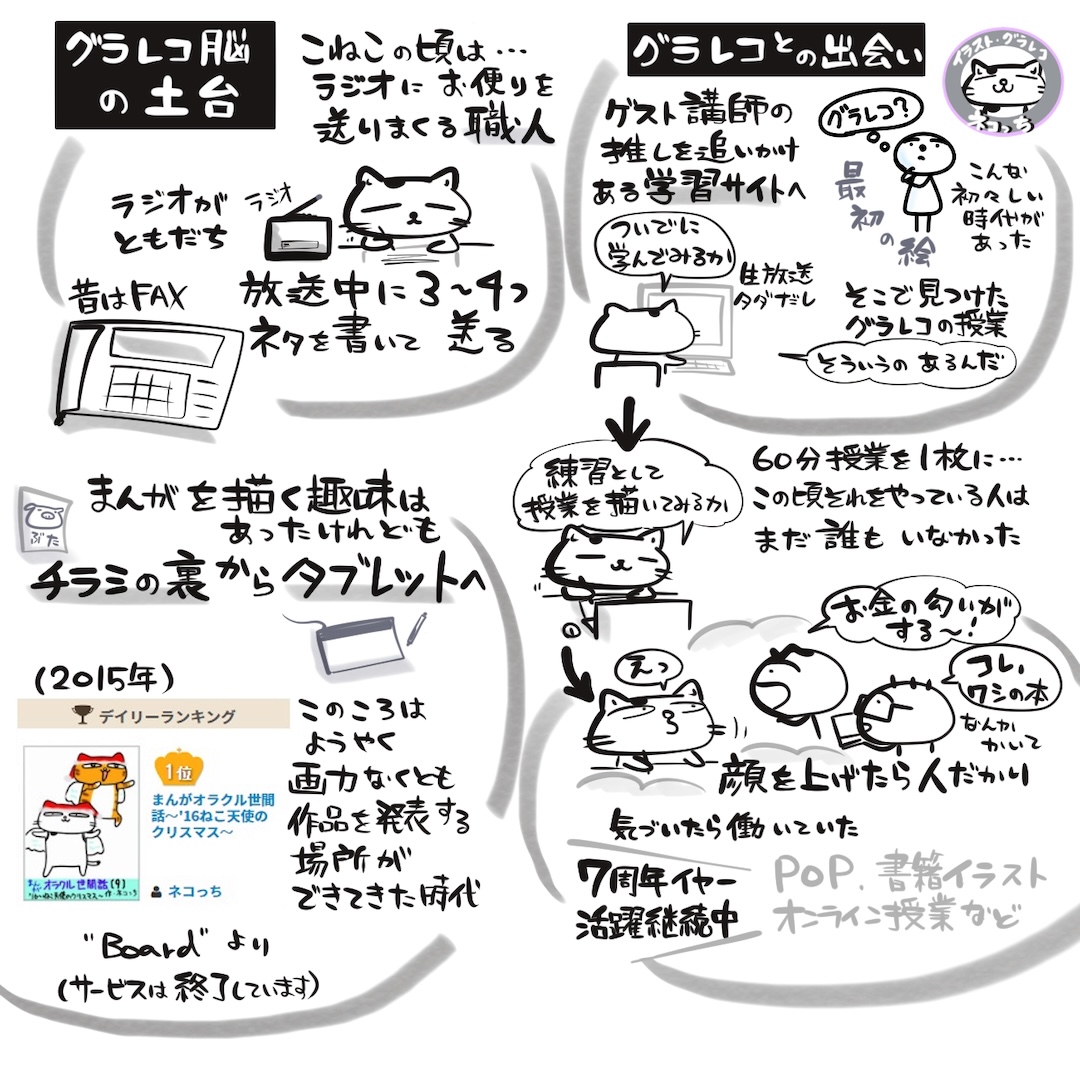 グラレコ脳
の土台
こねこの頃は…
ラジオにお便りを
送りまくる職人
ラジオが
ともだち
ラジオ
昔はFAX
放送中に3〜4つ
ネタを書いて 送る
ぶた
まんがを描く趣味は
あったけれども
チラシの裏からタブレットへ
(2015年)
デイリーランキング
1位
まんがオラクル世間
話〜'16ねこ天使の
クリスマス〜
ネコっち
オラクル世間話(9)
このころは
ようやく
画力なくとも
作品を発表する
場所が
できてきた時代
"Board"より
(サービスは終了しています)
グラレコとの出会い
イラスト・グラレコ
ネコっち
ゲスト講師の
推しを追いかけ
ある学習サイトへ
グラレコ?
最初の絵
こんな
初々しい
時代が
あった
ついでに
学んでみるか
生放送
タダだし
そこで見つけた
グラレコの授業
そういうの あるんだ
練習として
授業を描いてみるか
60分授業を1枚に…
この頃それをやっている人は
まだ誰もいなかった
お金の匂いが
する〜!
えっ
コレ、
ワシの本
なんか
かいて
顔を上げたら人だかり
気づいたら働いていた
7周年イヤー
活躍継続中
PoP. 書籍イラスト
オンライン授業など